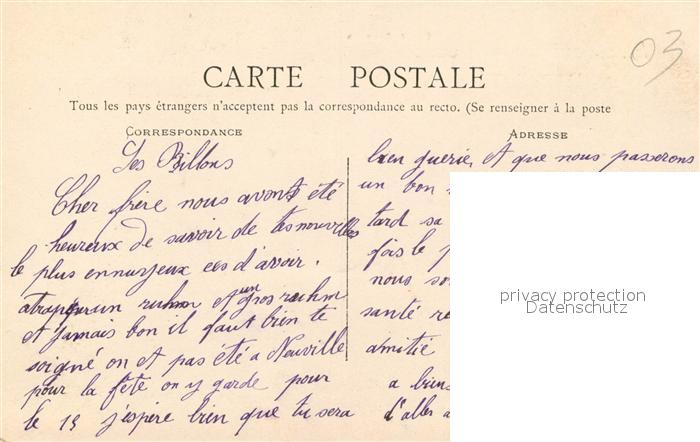 03
CARTE POSTALE
Tous les pays étrangers n'acceptent pas la correspondance au recto. (Se renseigner à la poste
CORRESPONDANCE
Les Billons
Cher frère nous avont été
heureux de savoir de tes nouvelles
le plus ennuyeux ces d'avoir
un ruhm et un gros ruhm
et jamais bon il faut bien te
soigné on et pas été a Neuville
pour la fête on y garde pour
le 15 j'espère bien que tu sera
ADRESSE
bien guerie et que nous passerons
un bon
tard sa
fois le
nous
santé
amitié
a
d'aller a
privacy protection
Datenschutz